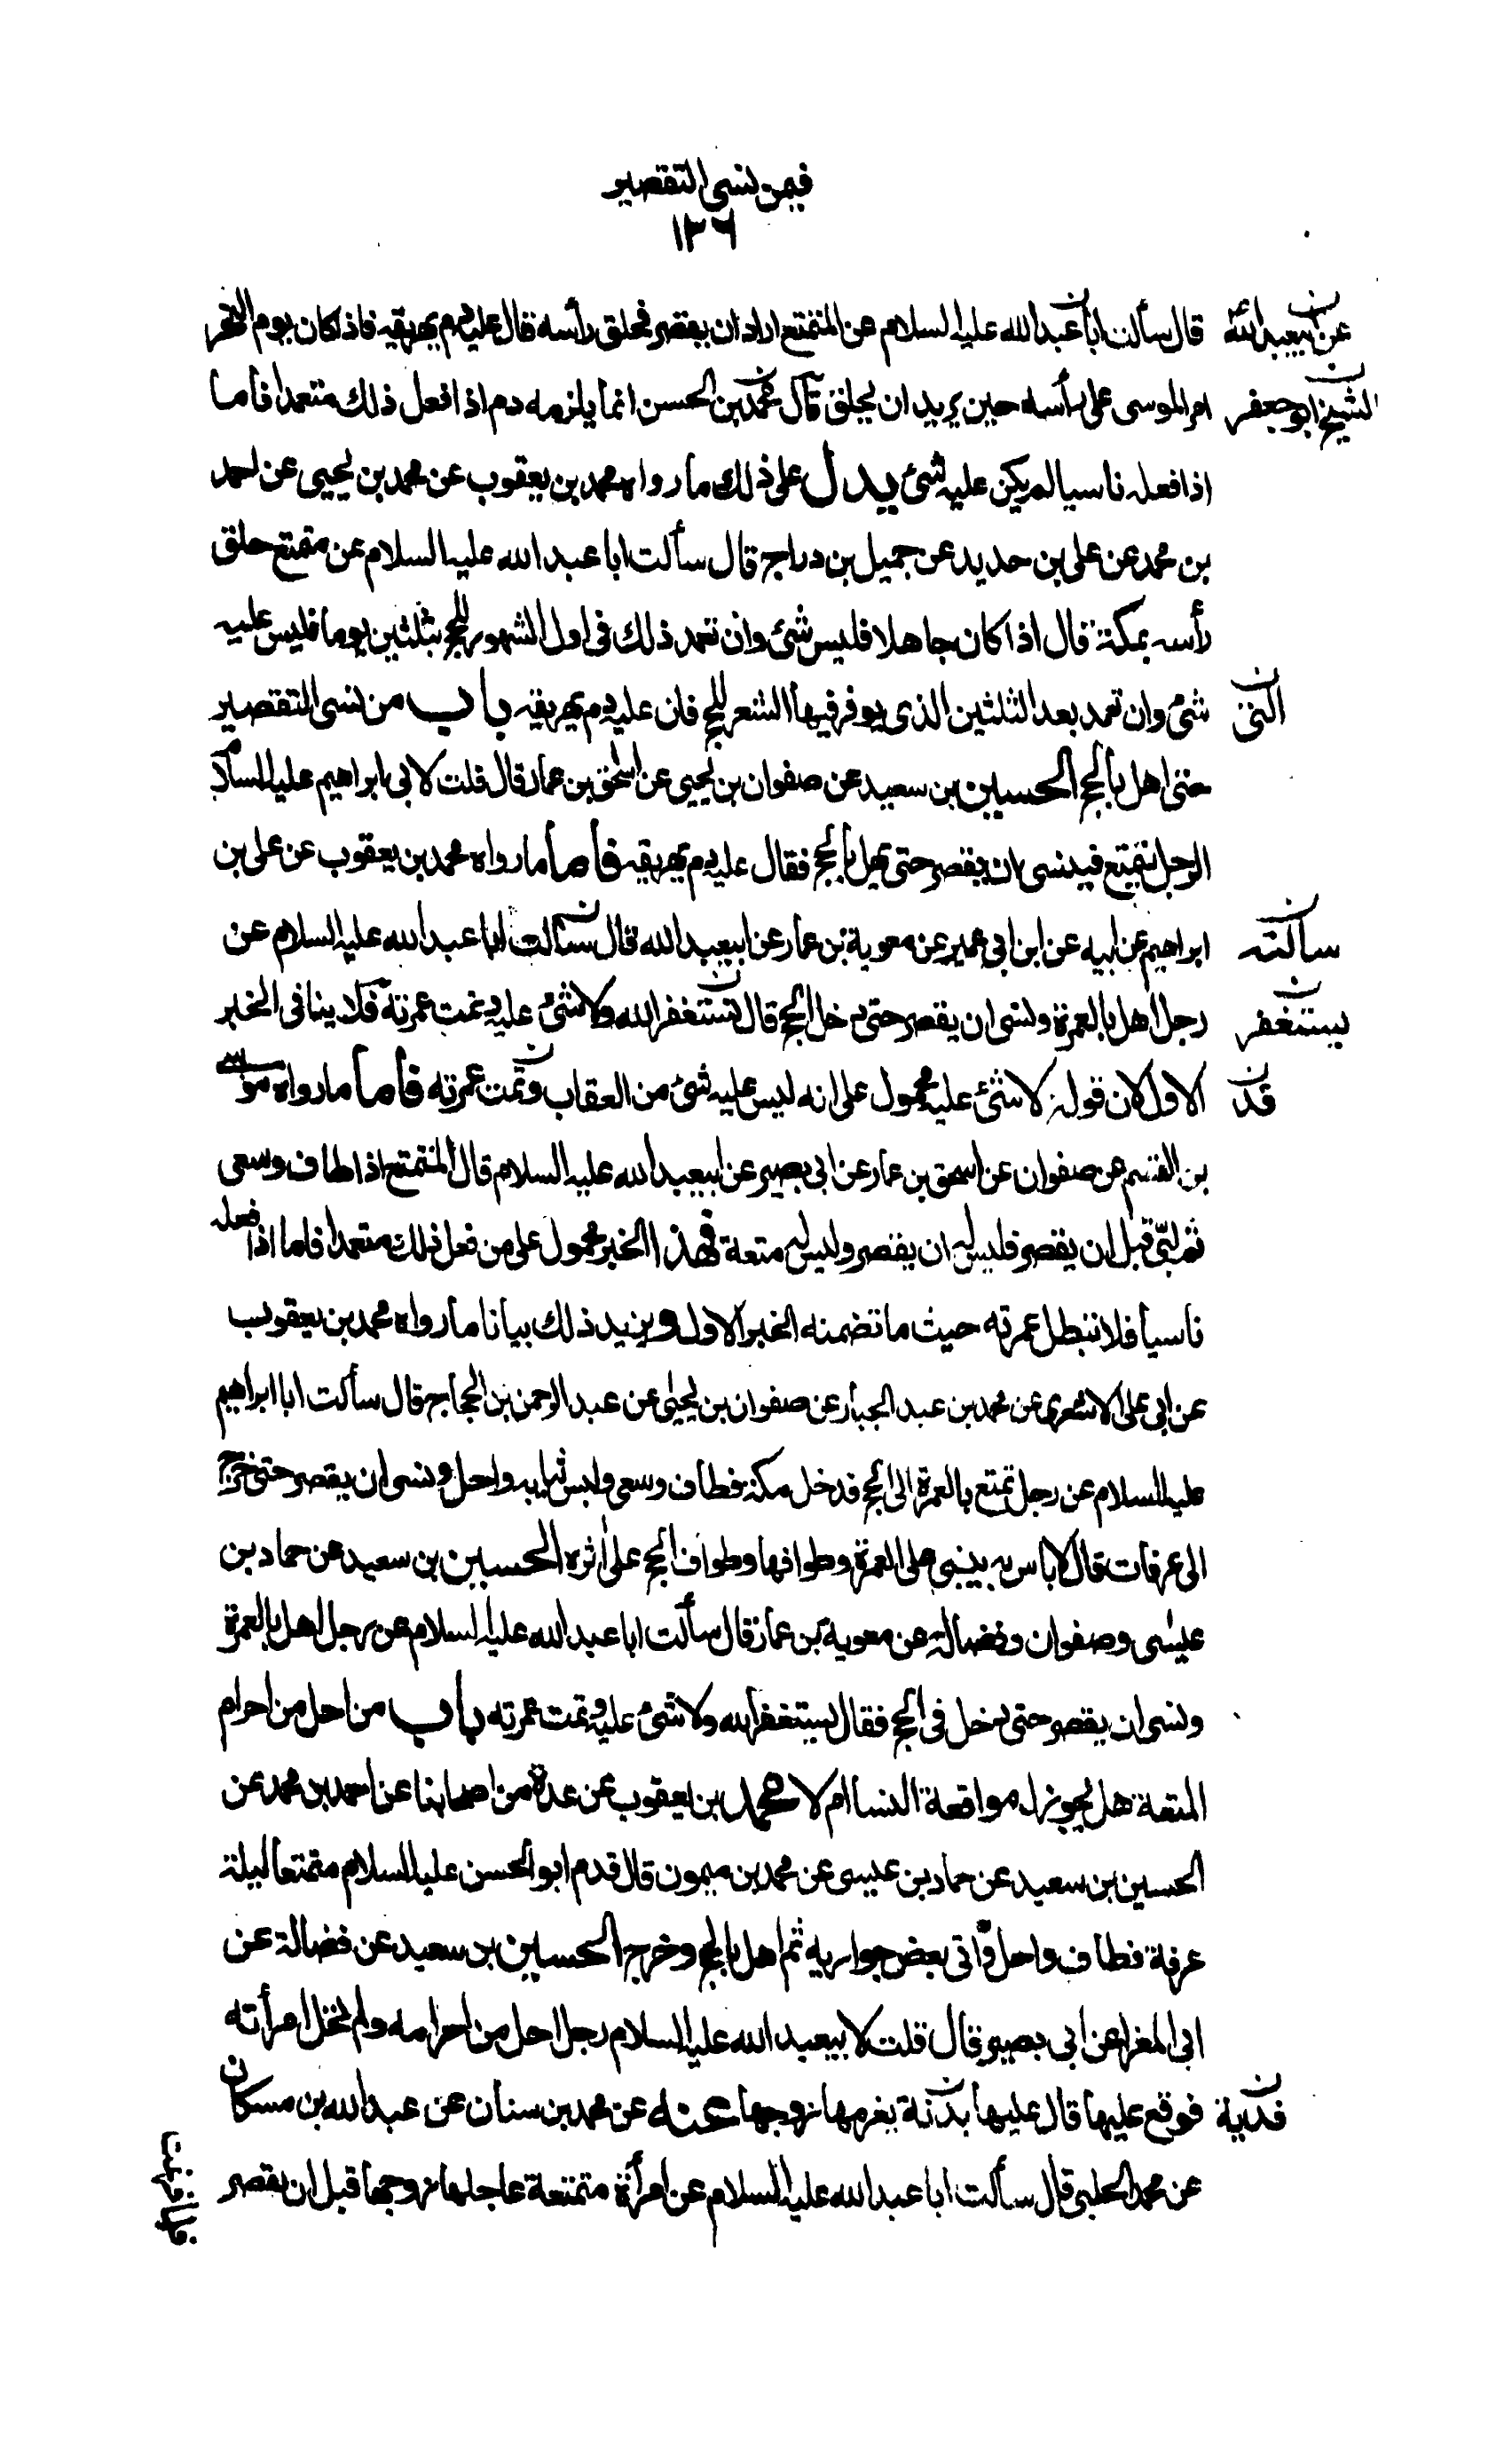 فيمن نسى التقصير
١٣٦
قال سألت ابا عبد الله عليه السلام عن المتمتع اراد ان يقصر فحلق رأسه قال عليه دم يهريقه فاذا كان يوم النحر
عن ابيعبد الله
امر الموسى على رأسه حين يريد ان يحلق قال محمد بن الحسن انما يلزمه دم اذا فعل ذلك متعمدا فاما
الشيخ ابو جعفر
اذا فعله ناسيا لم يكن عليه شئ يدل على ذلك ما رواه محمد بن يعقوب عن محمد بن يحيى عن احمد
بن محمد عن على بن حديد عن جميل بن دراج قال سألت ابا عبد الله عليه السلام عن متمتع حلق
رأسه بمكة قال اذا كان جاهلا فليس شئ وان تعمد ذلك فى اول الشهور للحج بثلثين يوما فليس عليه
شئ وان تعمد بعد الثلثين الذى يوفر فيها الشعر للحج فان عليه دم يهريقه باب من نسى التقصير
التى
حتى اهل بالحج الحسين بن سعيد عن صفوان بن يحيى عن اسحق بن عمار قال قلت لابى ابراهيم عليه السلام
الرجل تمتع فينسى ان يقصر حتى يهل بالحج فقال عليه دم يهريقه فاما ما رواه محمد بن يعقوب عن على بن
ابراهيم عن ابيه عن ابن ابى عمير عن معوية بن عمار عن ابيعبد الله قال سألت ابا عبد الله عليه السلام عن
سألته
رجل اهل بالعمرة ونسى ان يقصر حتى دخل الحج قال تستغفر الله ولا شئ عليه وتمت عمرته فلا ينافى الخبر
يستغفر
الاول لان قوله لا شئ عليه محمول على انه ليس عليه شئ من العقاب وتمت عمرته فاما ما رواه موسى
قد
بن القسم عن صفوان عن اسحق بن عمار عن ابى بصير عن ابيعبد الله عليه السلام قال المتمتع اذا طاف وسعى
ثم لبّى قبل ان يقصر فليس له ان يقصر وليس له متعة فهذا الخبر محمول على من فعل ذلك متعمدا فاما اذا فعله
ناسيا فلا تبطل عمرته حيث ما تضمنه الخبر الاول ويزيد ذلك بيانا ما رواه محمد بن يعقوب
عن ابى على الاشعرى عن محمد بن عبد الجبار عن صفوان بن يحيى عن عبد الرحمن بن الحجاج قال سألت ابا ابراهيم
عليه السلام عن رجل تمتع بالعمرة الى الحج فدخل مكة فطاف وسعى ولبس ثيابه واحل ونسى ان يقصر حتى خرج
الى عرفات قال لا باس به يبنى على العمرة وطوافها وطواف الحج على اثره الحسين بن سعيد عن حماد بن
عيسى وصفوان وفضالة عن معوية بن عمار قال سألت ابا عبد الله عليه السلام عن رجل اهل بالعمرة
ونسى ان يقصر حتى دخل فى الحج فقال يستغفر الله ولا شئ عليه وتمت عمرته باب من احل من احرام
المتعة هل يجوز له مواقعة النسا ام لا محمد بن يعقوب عن عدة من اصحابنا عن احمد بن محمد عن
الحسين بن سعيد عن حماد بن عيسى عن محمد بن ميمون قال قدم ابو الحسن عليه السلام متمتعا ليلة
عرفة فطاف واحل واتى بعض جواريه ثم اهل بالحج وخرج الحسين بن سعيد عن فضالة عن
ابى المغرا عن ابى بصير قال قلت لابيعبد الله عليه السلام رجل احل من احرامه ولم تحل امرأته
فوقع عليها قال عليها بدنة يغرمها زوجها عنه عن محمد بن سنان عن عبد الله بن مسكان
فدية
عن محمد الحلبى قال سألت ابا عبد الله عليه السلام عن امرأة متمتعة عاجلها زوجها قبل ان يقصر